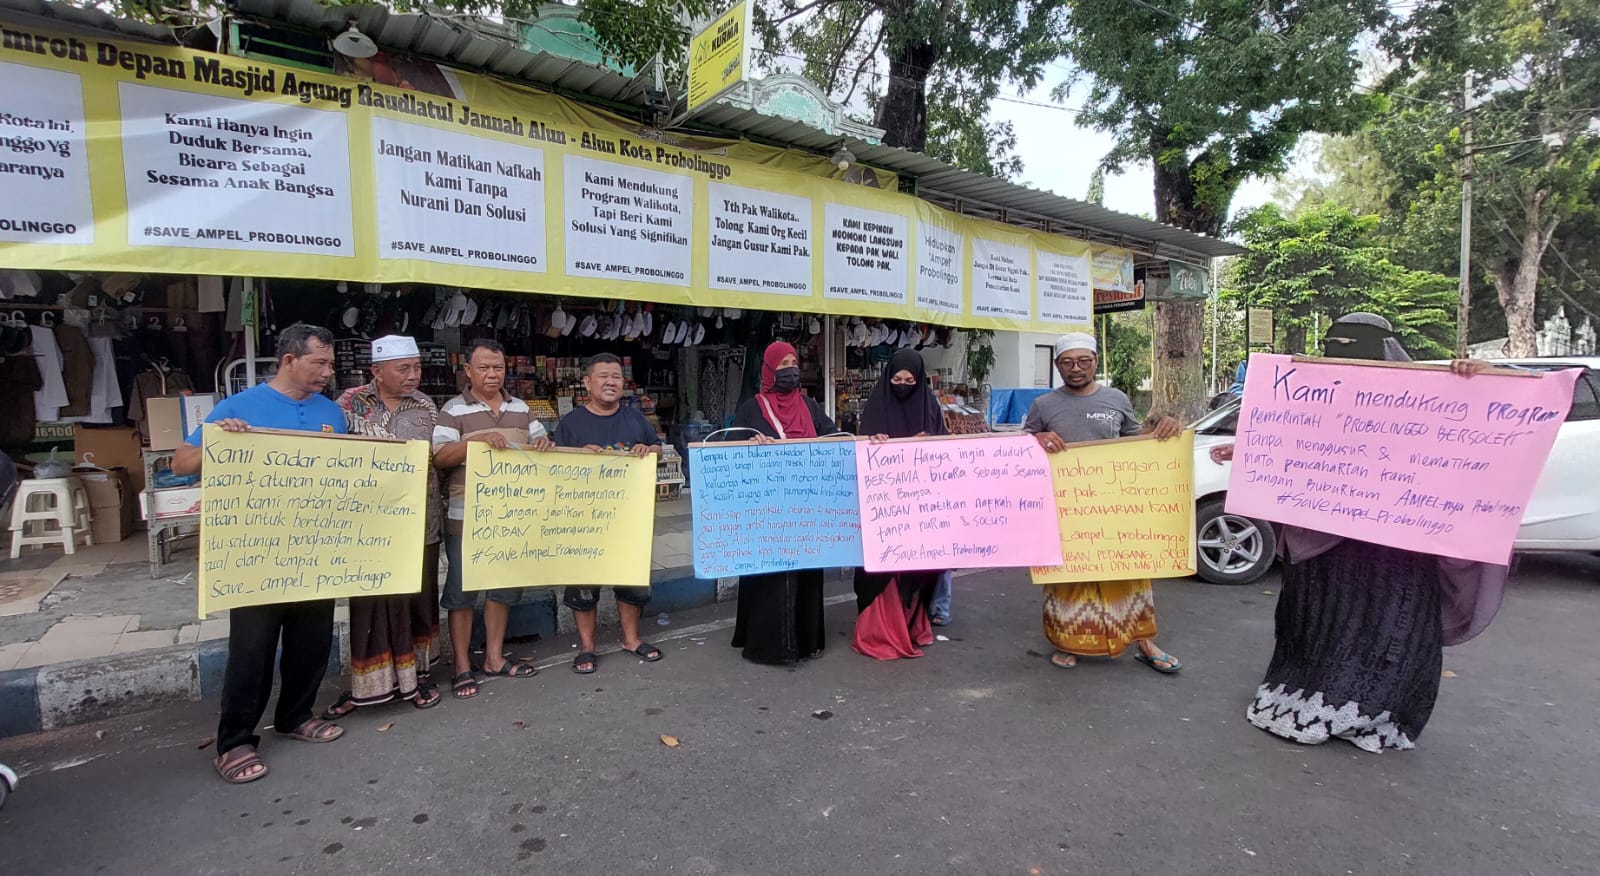 mroh Depan Masjid Agung Raudlatul Jannah Alun - Alun Kota Probolinggo
Kota Ini,
nggo Yg
aranya
PROBOLINGGO
Kami Hanya Ingin
Duduk Bersama,
Bicara Sebagai
Sesama Anak Bangsa
#SAVE_AMPEL_PROBOLINGGO
Jangan Matikan Nafkah
Kami Tanpa
Nurani Dan Solusi
#SAVE_AMPEL_PROBOLINGGO
Kami Mendukung
Program Walikota,
Tapi Beri Kami
Solusi Yang Signifikan
#SAVE_AMPEL_PROBOLINGGO
Yth Pak Walikota..
Tolong Kami Org Kecil
Jangan Gusur Kami Pak.
#SAVE_AMPEL_PROBOLINGGO
KAMI KEPINGIN
NGOMONG LANGSUNG
KEPADA PAK WALI
TOLONG PAK.
#SAVE_AMPEL_PROBOLINGGO
Hidupkan
"Ampel"
Probolinggo
#SAVE_AMPEL_PROBOLINGGO
Kami Mohon
Jangan Di Gusur Nggeh Pak..
Karena Ini Mata
Pencaharian Kami
#SAVE_AMPEL_PROBOLINGGO
KURMA
resident
Kami sadar akan keterba-
tasan & aturan yang ada.
amun kami mohon diberi kesem-
atan untuk bertahan
atu-satunya penghasilan kami
dari tempat ini......
Save_ampel_probolinggo
Jangan anggap kami
Penghalang Pembangunan.
Tapi Jangan jadikan kami
KORBAN Pembangunan!
#SaveAmpel_Probolinggo
Tempat ini bukan sekedar lokasi ber-
dagang, tapi ladang rezeki halal bagi
keluarga kami. Kami mohon kebijaksanaan
& kasih sayang dari pemangku kebijakan
Kami siap mengikuti aturan &
jangan ambil harapan kami satu-satunya
Semoga Allah membalas segala kebijakan
yang berpihak kpd rakyat kecil.
#save_ampel_probolinggo
Kami Hanya ingin duduk
BERSAMA, bicara sebagai Sesama
anak Bangsa.
JANGAN matikan nafkah kami
tanpa nuRani & solusi
#SaveAmpel_Probolinggo
mohon jangan di
ur pak.... karena ini
PENCAHARIAN KAMI
_ampel_probolinggo
UBAN PEDAGANG OLEH
UMROH DPN MASJID AGU
Kami mendukung PROgram
PEMERINTAH "PROBOLINGGO BERSOLEK"
Tanpa menggusur & mematikan
mata pencaharian Kami.
Jangan BubarKam AMPEL-nya Probolinggo
#SaveAmpel_Probolinggo